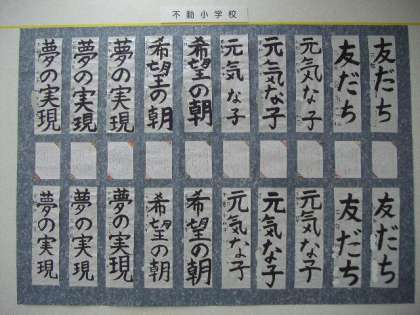 不動小学校
友だち
友だち
元気な子
元気な子
元気な子
希望の朝
希望の朝
夢の実現
夢の実現
夢の実現
友だち
友だち
元気な子
元気な子
元気な子
希望の朝
希望の朝
夢の実現
夢の実現
夢の実現